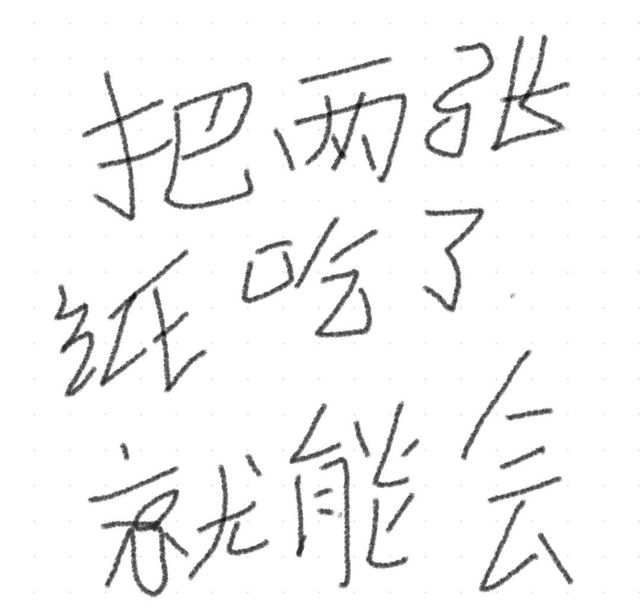 把两张
纸吃了
就能会